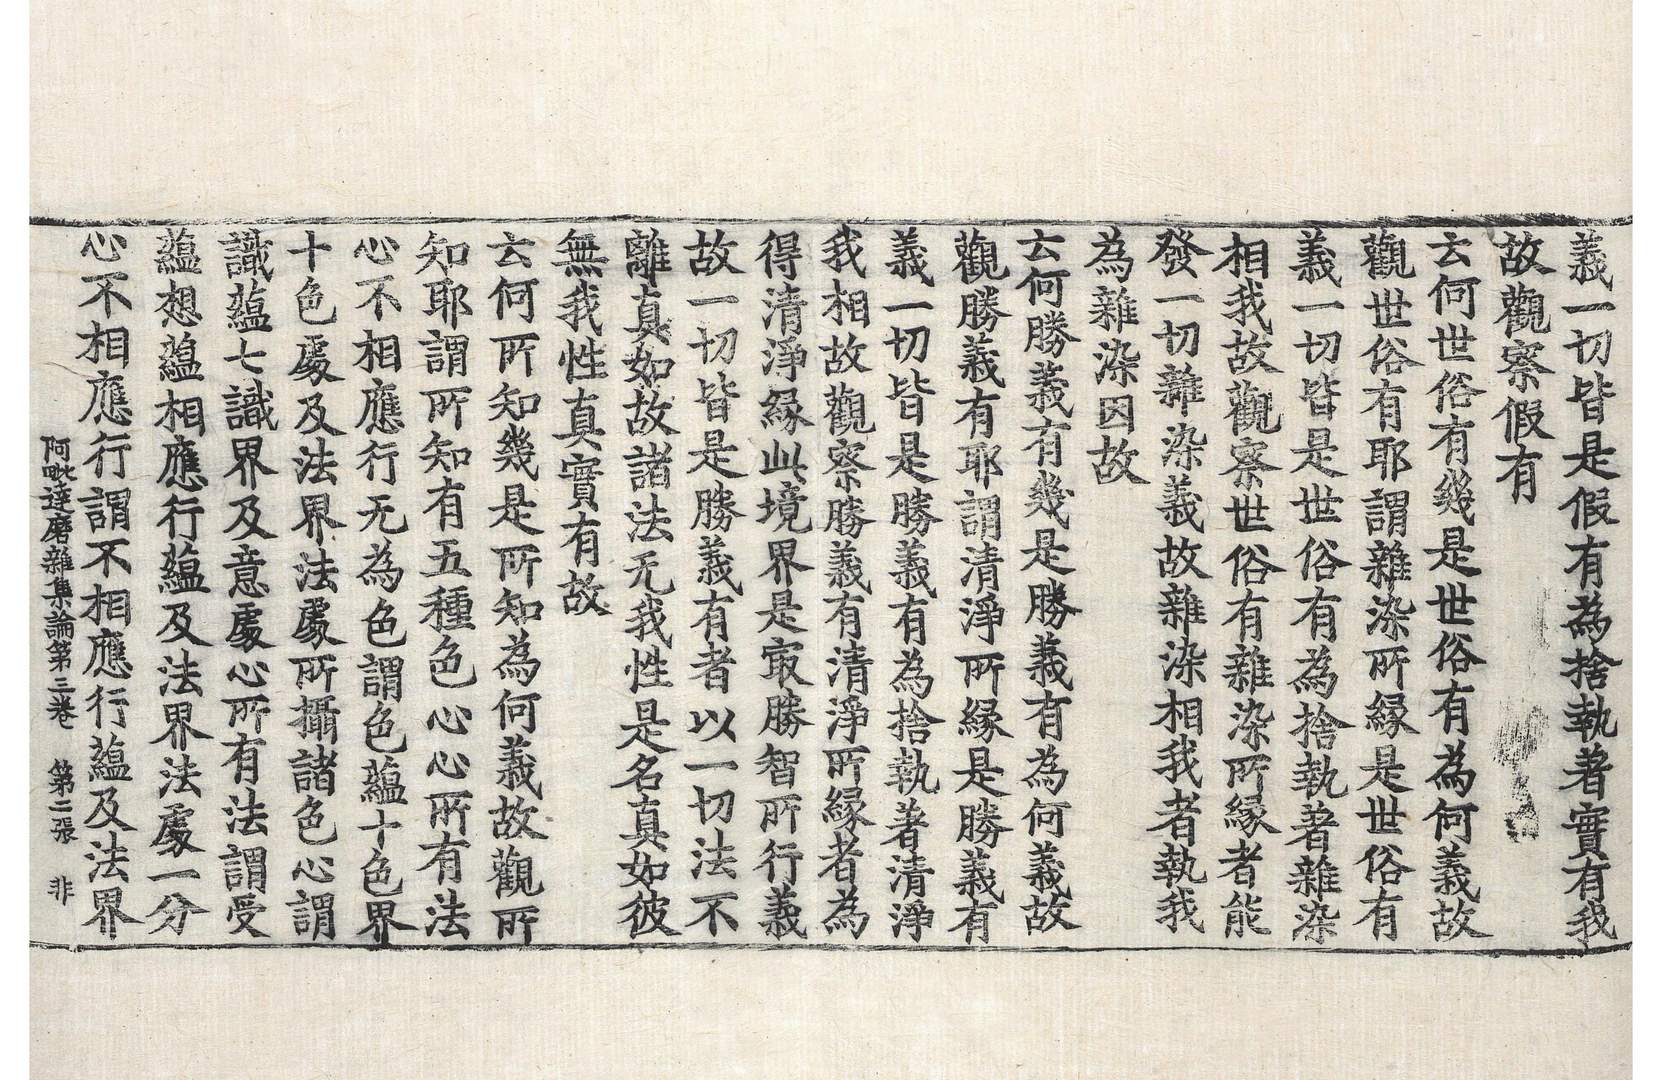 義一切皆是假有為捨執著實有我
故觀察假有
云何世俗有幾是世俗有為何義故
觀世俗有耶謂雜染所緣是世俗有
義一切皆是世俗有為捨執著雜染
相我故觀察世俗有雜染所緣者能
發一切雜染義故雜染相我者執我
為雜染因故
云何勝義有幾是勝義有為何義故
觀勝義有耶謂清淨所緣是勝義有
義一切皆是勝義有為捨執著清淨
我相故觀察勝義有清淨所緣者為
得清淨緣此境界是㝡勝智所行義
故一切皆是勝義有者以一切法不
離真如故諸法无我性是名真如彼
無我性真實有故
云何所知幾是所知為何義故觀所
知耶謂所知有五種色心心所有法
心不相應行无為色謂色蘊十色界
十色處及法界法處所攝諸色心謂
識蘊七識界及意處心所有法謂受
蘊想蘊相應行蘊及法界法處一分
心不相應行謂不相應行蘊及法界
阿毗達磨雜集論第三卷 第二張 非